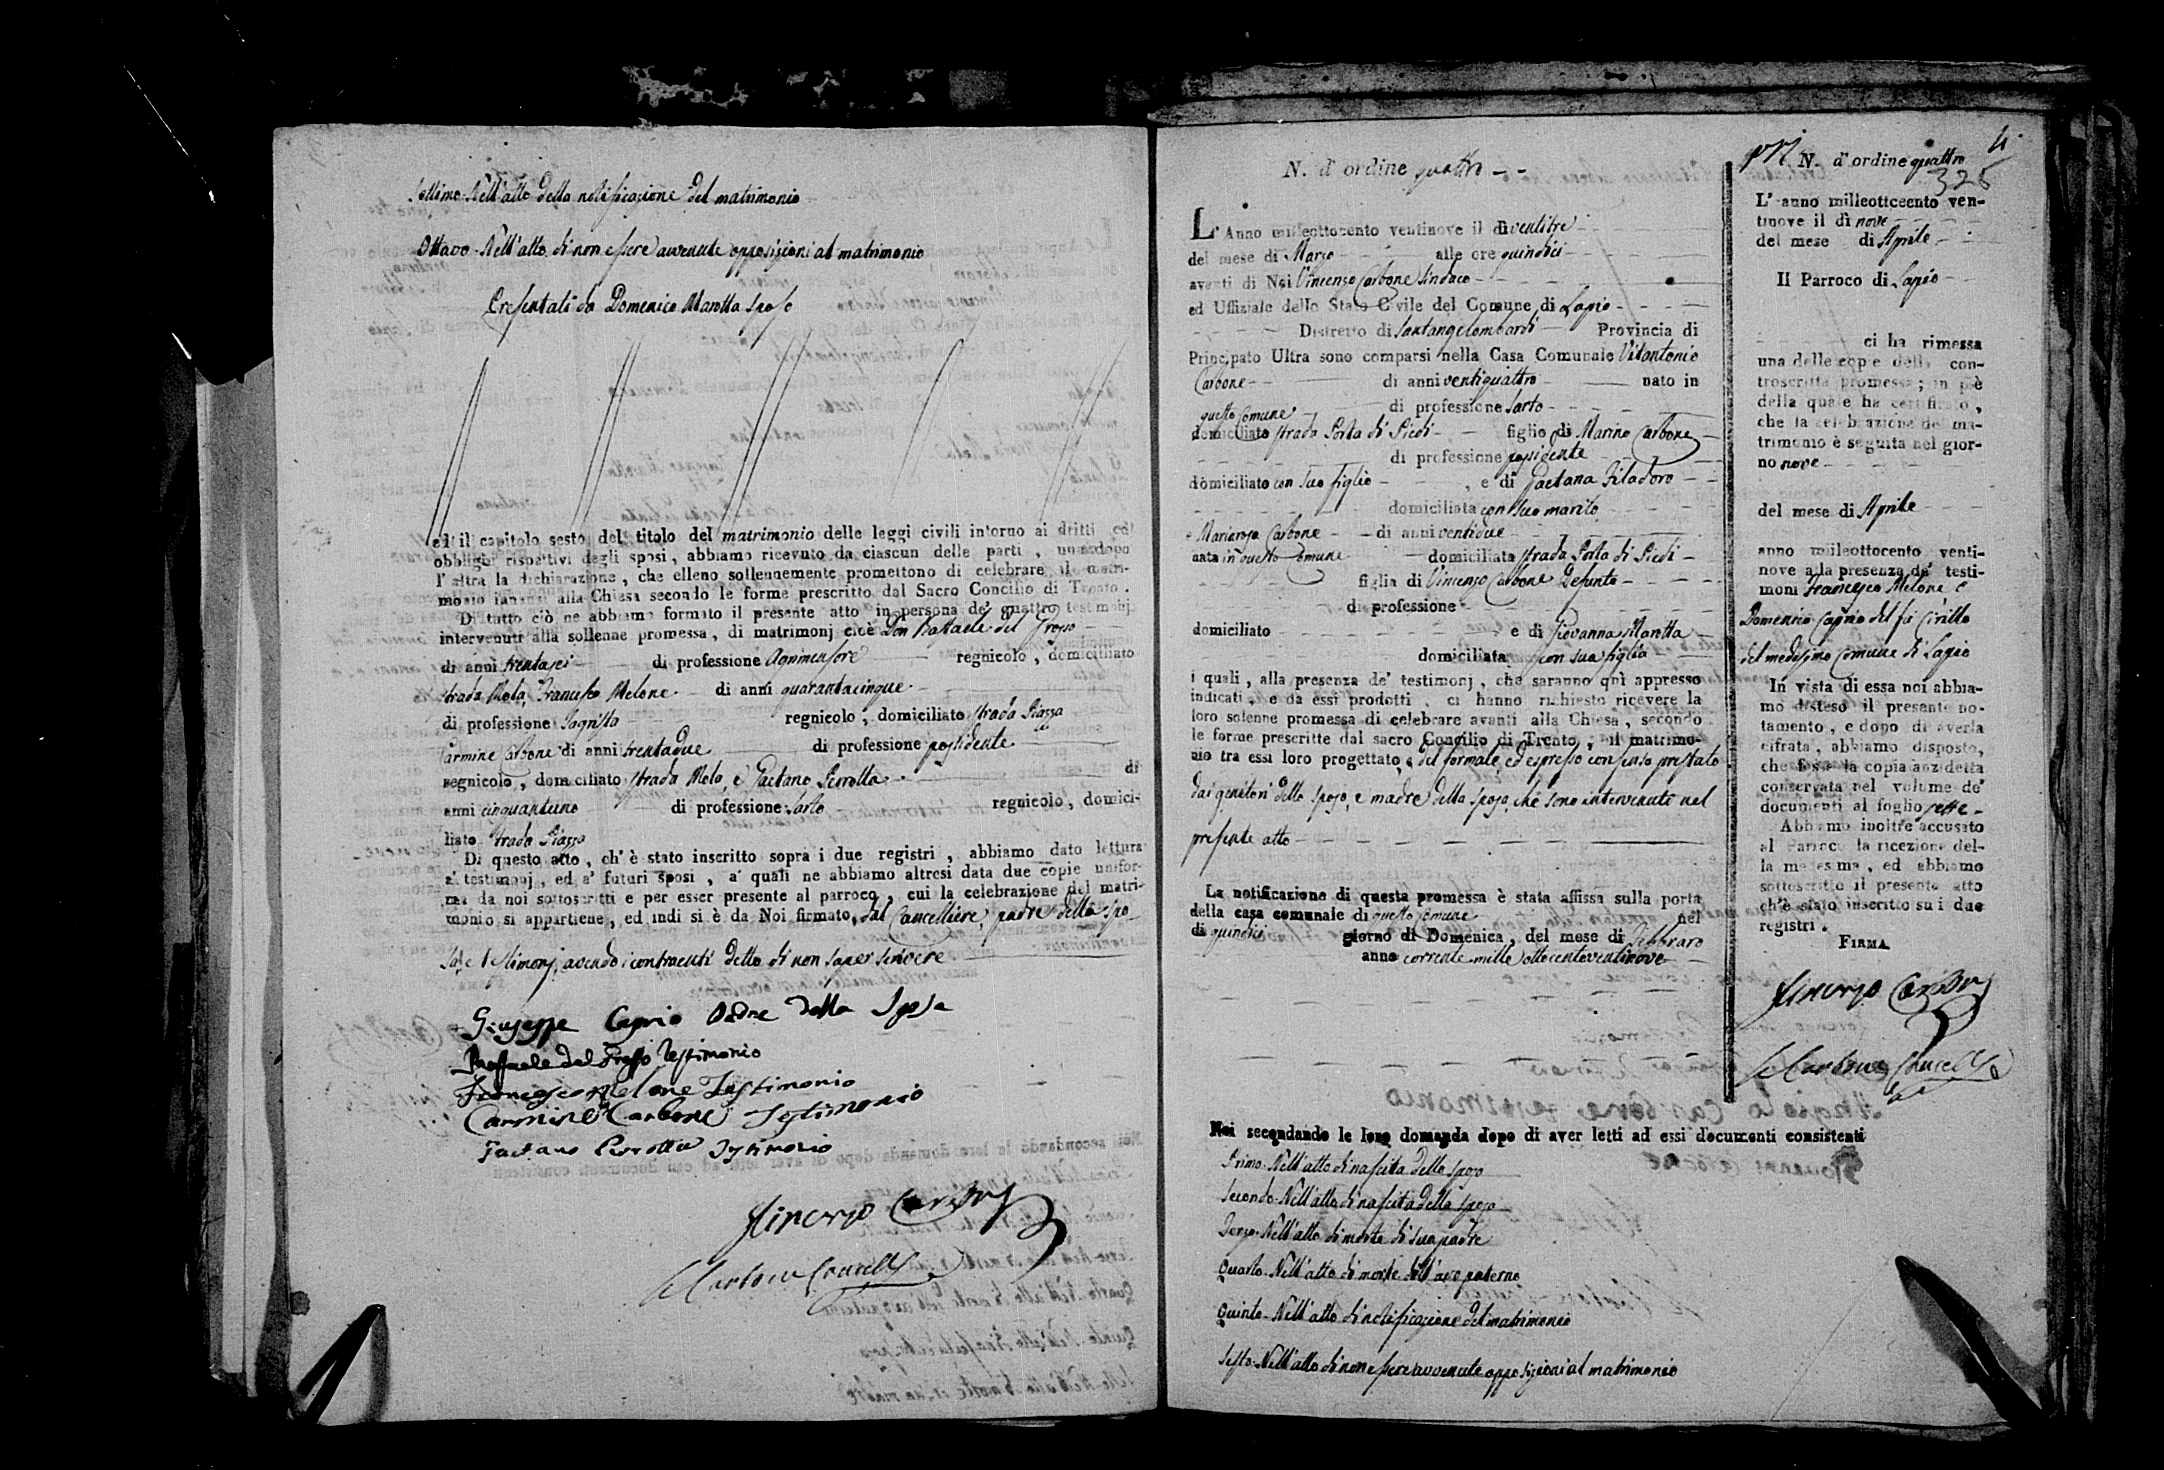 Settimo. Nell'atto della notificazione del matrimonio
Ottavo. Nell'atto di non essere avvenute opposizioni al matrimonio
Presentati da Domenico Marotta sposo
ed il capitolo sesto del titolo del matrimonio delle leggi civili intorno ai dritti ed
obblighi rispettivi degli sposi, abbiamo ricevuto da ciascun delle parti, una dopo
l'altra la dichiarazione, che elleno sollennemente promettono di celebrare il matri-
monio innanzi alla Chiesa secondo le forme prescritto dal Sacro Concilio di Trento.
Di tutto ciò ne abbiamo formato il presente atto in persona de' quattro testimonj
intervenuti alla sollenne promessa, di matrimonj cioè Don Raffaele del Grosso
di anni trentasei di professione Agrimensore regnicolo, domiciliato
strada Mola, Francesco Melone di anni quarantacinque
di professione regnicolo, domiciliato strada Piazza
Carmine Carbone di anni trentadue di professione possidente
regnicolo, domiciliato strada Mola, e Gaetano Perrotta di
anni cinquantuno di professione sarto regnicolo, domici-
liato strada Piazza
Di questo atto, ch'è stato inscritto sopra i due registri, abbiamo dato lettura
a' testimonj, ed a' futuri sposi, a' quali ne abbiamo altresì data due copie unifor-
mi da noi sottoscritti e per esser presente al parroco, cui la celebrazione del matri-
monio si appartiene, ed indi si è da Noi firmato, dal Cancelliere, padre della spo-
sa, e testimonj, avendo i contraenti detto di non saper scrivere
Giuseppe Caprio Padre della Sposa
Raffaele del Grosso Testimonio
Francesco Melone Testimonio
Carmine Carbone Testimonio
Gaetano Perrotta Testimonio
Vincenzo Carbone
Carbone Cancelle
N. d'ordine quattro
L'Anno milleottocento ventinove il dì ventitre
del mese di Marzo alle ore quindici
avanti di Noi Vincenzo Carbone Sindaco
ed Uffiziale dello Stato Civile del Comune di Lapio
Distretto di Santangelombardi Provincia di
Principato Ultra sono comparsi nella Casa Comunale Vitantonio
Carbone di anni ventiquattro nato in
questo Comune di professione sarto
domiciliato strada Porta di Piedi figlio di Marino Carbone
di professione possidente
domiciliato con suo figlio, e di Gaetana Filadoro
domiciliata con suo marito
e Mariarosa Carbone di anni ventidue
nata in questo Comune domiciliata strada Porta di Piedi
figlia di Vincenzo Carbone Defunto
di professione
domiciliato e di Giovanna Marotta
domiciliata con sua figlia
i quali, alla presenza de' testimonj, che saranno qui appresso
indicati, e da essi prodotti, ci hanno richiesto ricevere la
loro solenne promessa di celebrare avanti alla Chiesa, secondo
le forme prescritte dal sacro Concilio di Trento, il matrimo-
nio tra essi loro progettato, e del formale, ed espresso consenso prestato
dai genitori dello sposo, e madre della sposa, che sono intervenuti nel
presente atto
La notificazione di questa promessa è stata affissa sulla porta
della casa comunale di questo Comune nel
dì quindici giorno di Domenica, del mese di Febbraro
anno corrente mille ottocentoventinove
Noi secondando le loro domanda dopo di aver letti ad essi documenti consistenti
Primo. Nell'atto di nascita dello sposo
Secondo. Nell'atto di nascita della sposa
Terzo. Nell'atto di morte di sua padre
Quarto. Nell'atto di morte dell'avo paterno
Quinto. Nell'atto di notificazione del matrimonio
Sesto. Nell'atto di non essere avvenute opposizioni al matrimonio
4
N. d'ordine quattro
325
L'anno milleottocento ven-
tinove il dì nove
del mese di Aprile
Il Parroco di Lapio
ci ha rimessa
una delle copie della con-
troscritta promessa; in piè
della quale ha certificato,
che la celebrazione del ma-
trimonio è seguita nel gior-
no nove
del mese di Aprile
anno milleottocento venti-
nove alla presenza de' testi-
moni Francesco Melone e
Domenico Caprio del fù Cirillo
del medesimo Comune di Lapio
In vista di essa noi abbia-
mo disteso il presente no-
tamento, e dopo di averla
cifrata, abbiamo disposto,
che fosse la copia anzidetta
conservata nel volume de'
documenti al foglio sette
Abbiamo inoltre accusato
al Parroco la ricezione del-
la medesima, ed abbiamo
sottoscritto il presente atto
ch'è stato inscritto su i due
registri.
FIRMA
Vincenzo Carbone
Carbone Cancelle